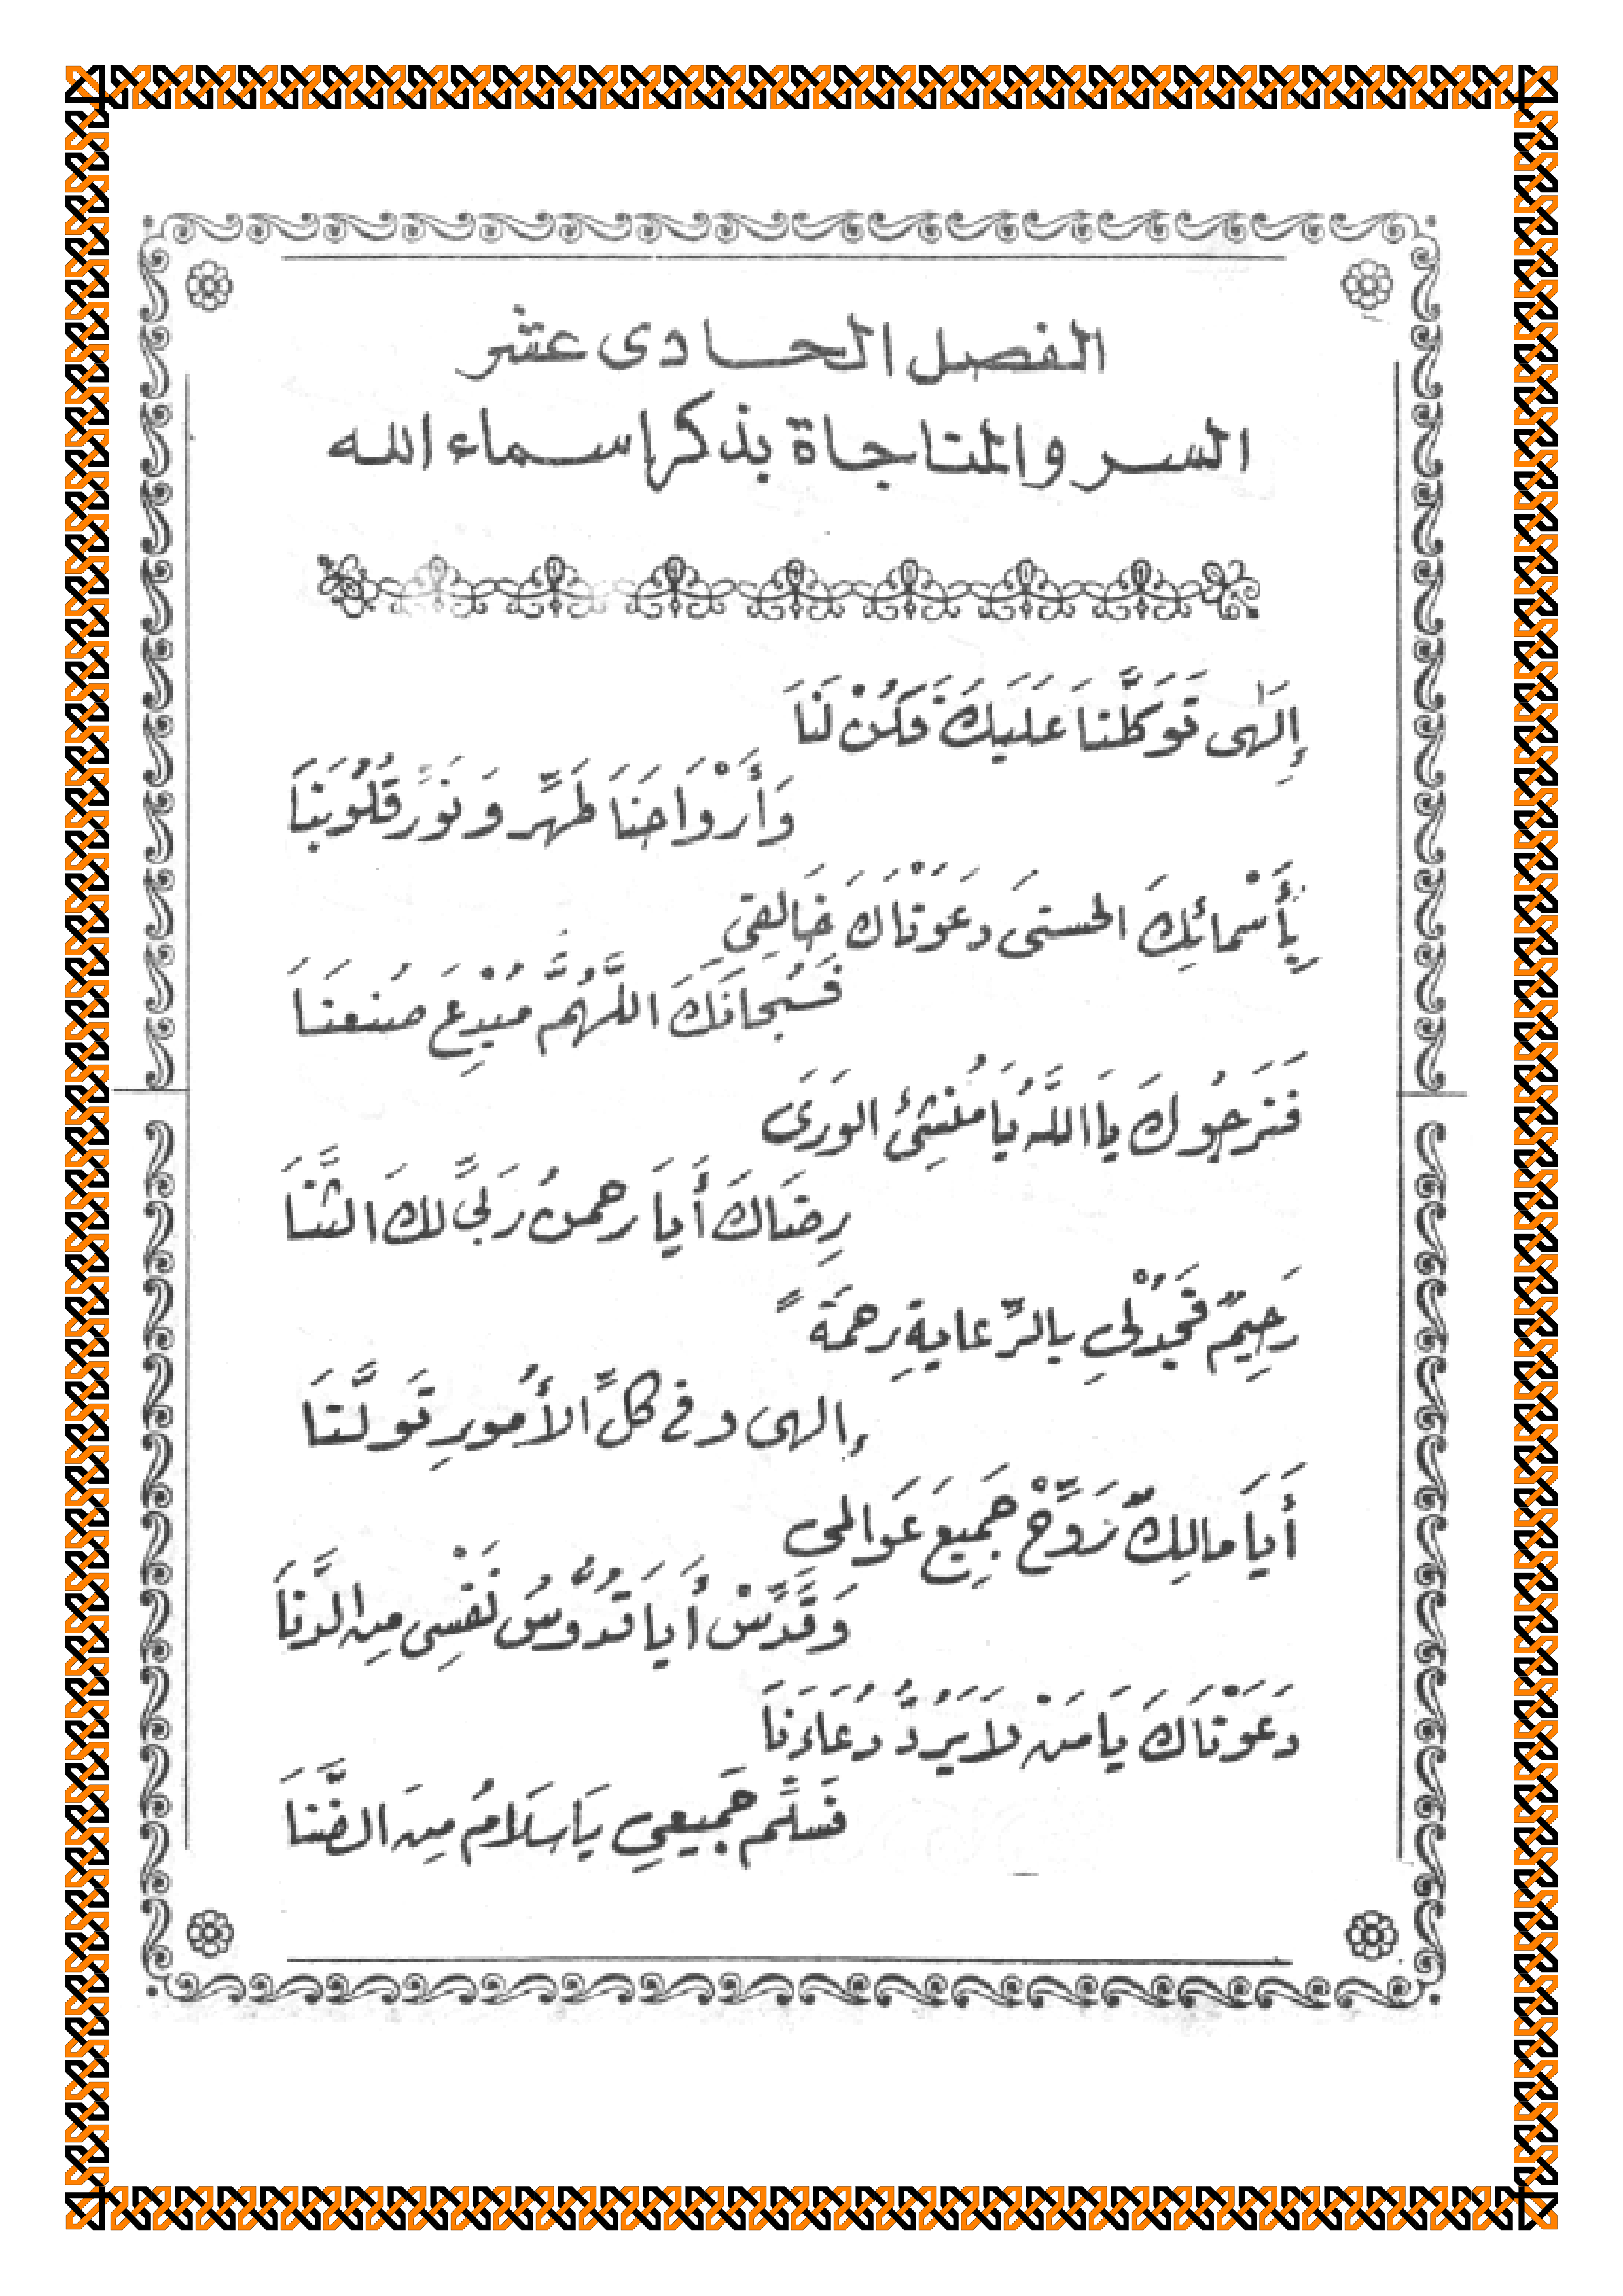 الفصل الحادى عشر
السر والمناجاة بذكر اسماء الله
إِلَٰهِى تَوَكَّلْنَا عَلَيْكَ فَكُنْ لَنَا
وَأَرْوَاحَنَا طَهِّر وَنَوِّر قُلُوبَنَا
بِأَسْمائِكَ الحسنَى دعَوْنَاكَ خَالِقِي
فَسُبحانَكَ اللَّهُمَّ مُبْدِعَ صُنعنَا
فَنَرجُوكَ يَا اللَّهُ يَا مُنْشِئُ الوَرَى
رِضَاكَ أَيَا رحمنُ رَبِّى لكَ الثَّنَا
رَحِيمٌ فَجُدْ لِي بالرِّعايةِ رحمَةً
إلهى وفى كلِّ الأُمُورِ تَوَلَّنَا
أَيَا مالِكٌ رَوِّحْ جَمِيعَ عَوَالمِي
وَقَدِّسْ أَيَا قُدُّوسُ نَفْسِى مِن الدَّنَا
دَعَوْنَاكَ يَا مَنْ لَا يَرُدُّ دُعَاءَنَا
فَسَلِّم جَمِيعِي يَا سَلَامُ مِنَ الضَّنَا